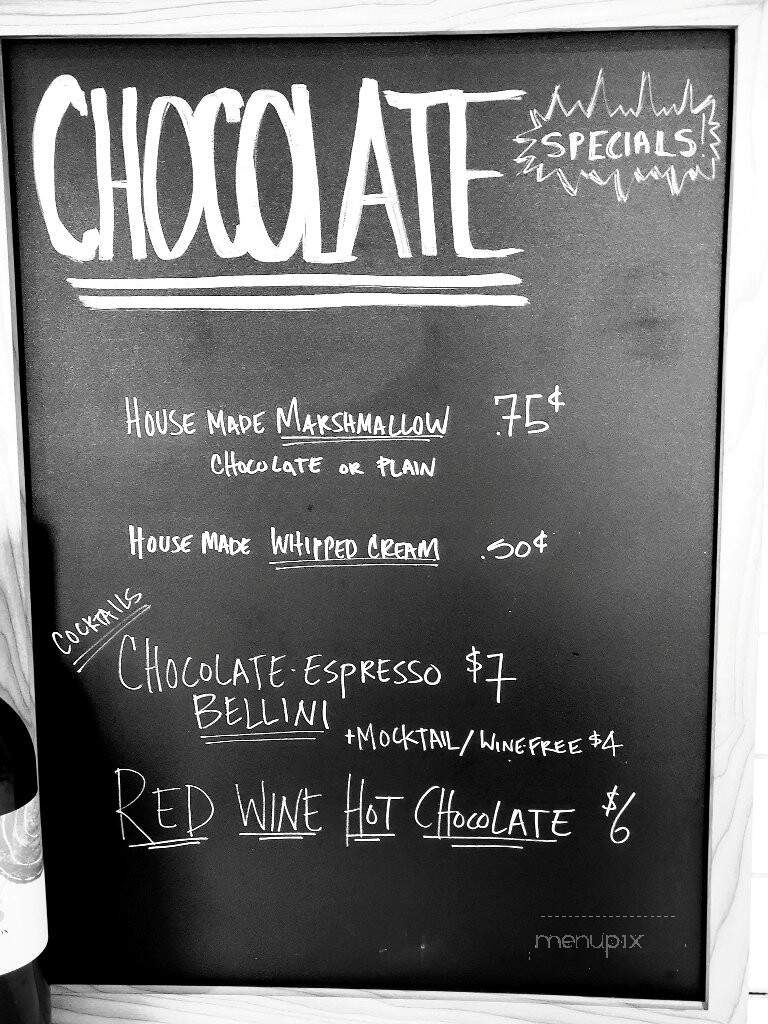 CHOCOLATE
SPECIALS!
HOUSE MADE MARSHMALLOW .75¢
CHOCOLATE OR PLAIN
HOUSE MADE WHIPPED CREAM .50¢
COCKTAILS
CHOCOLATE·ESPRESSO $7
BELLINI
+MOCKTAIL/WINEFREE $4
RED WINE HOT CHOCOLATE $6
menupix